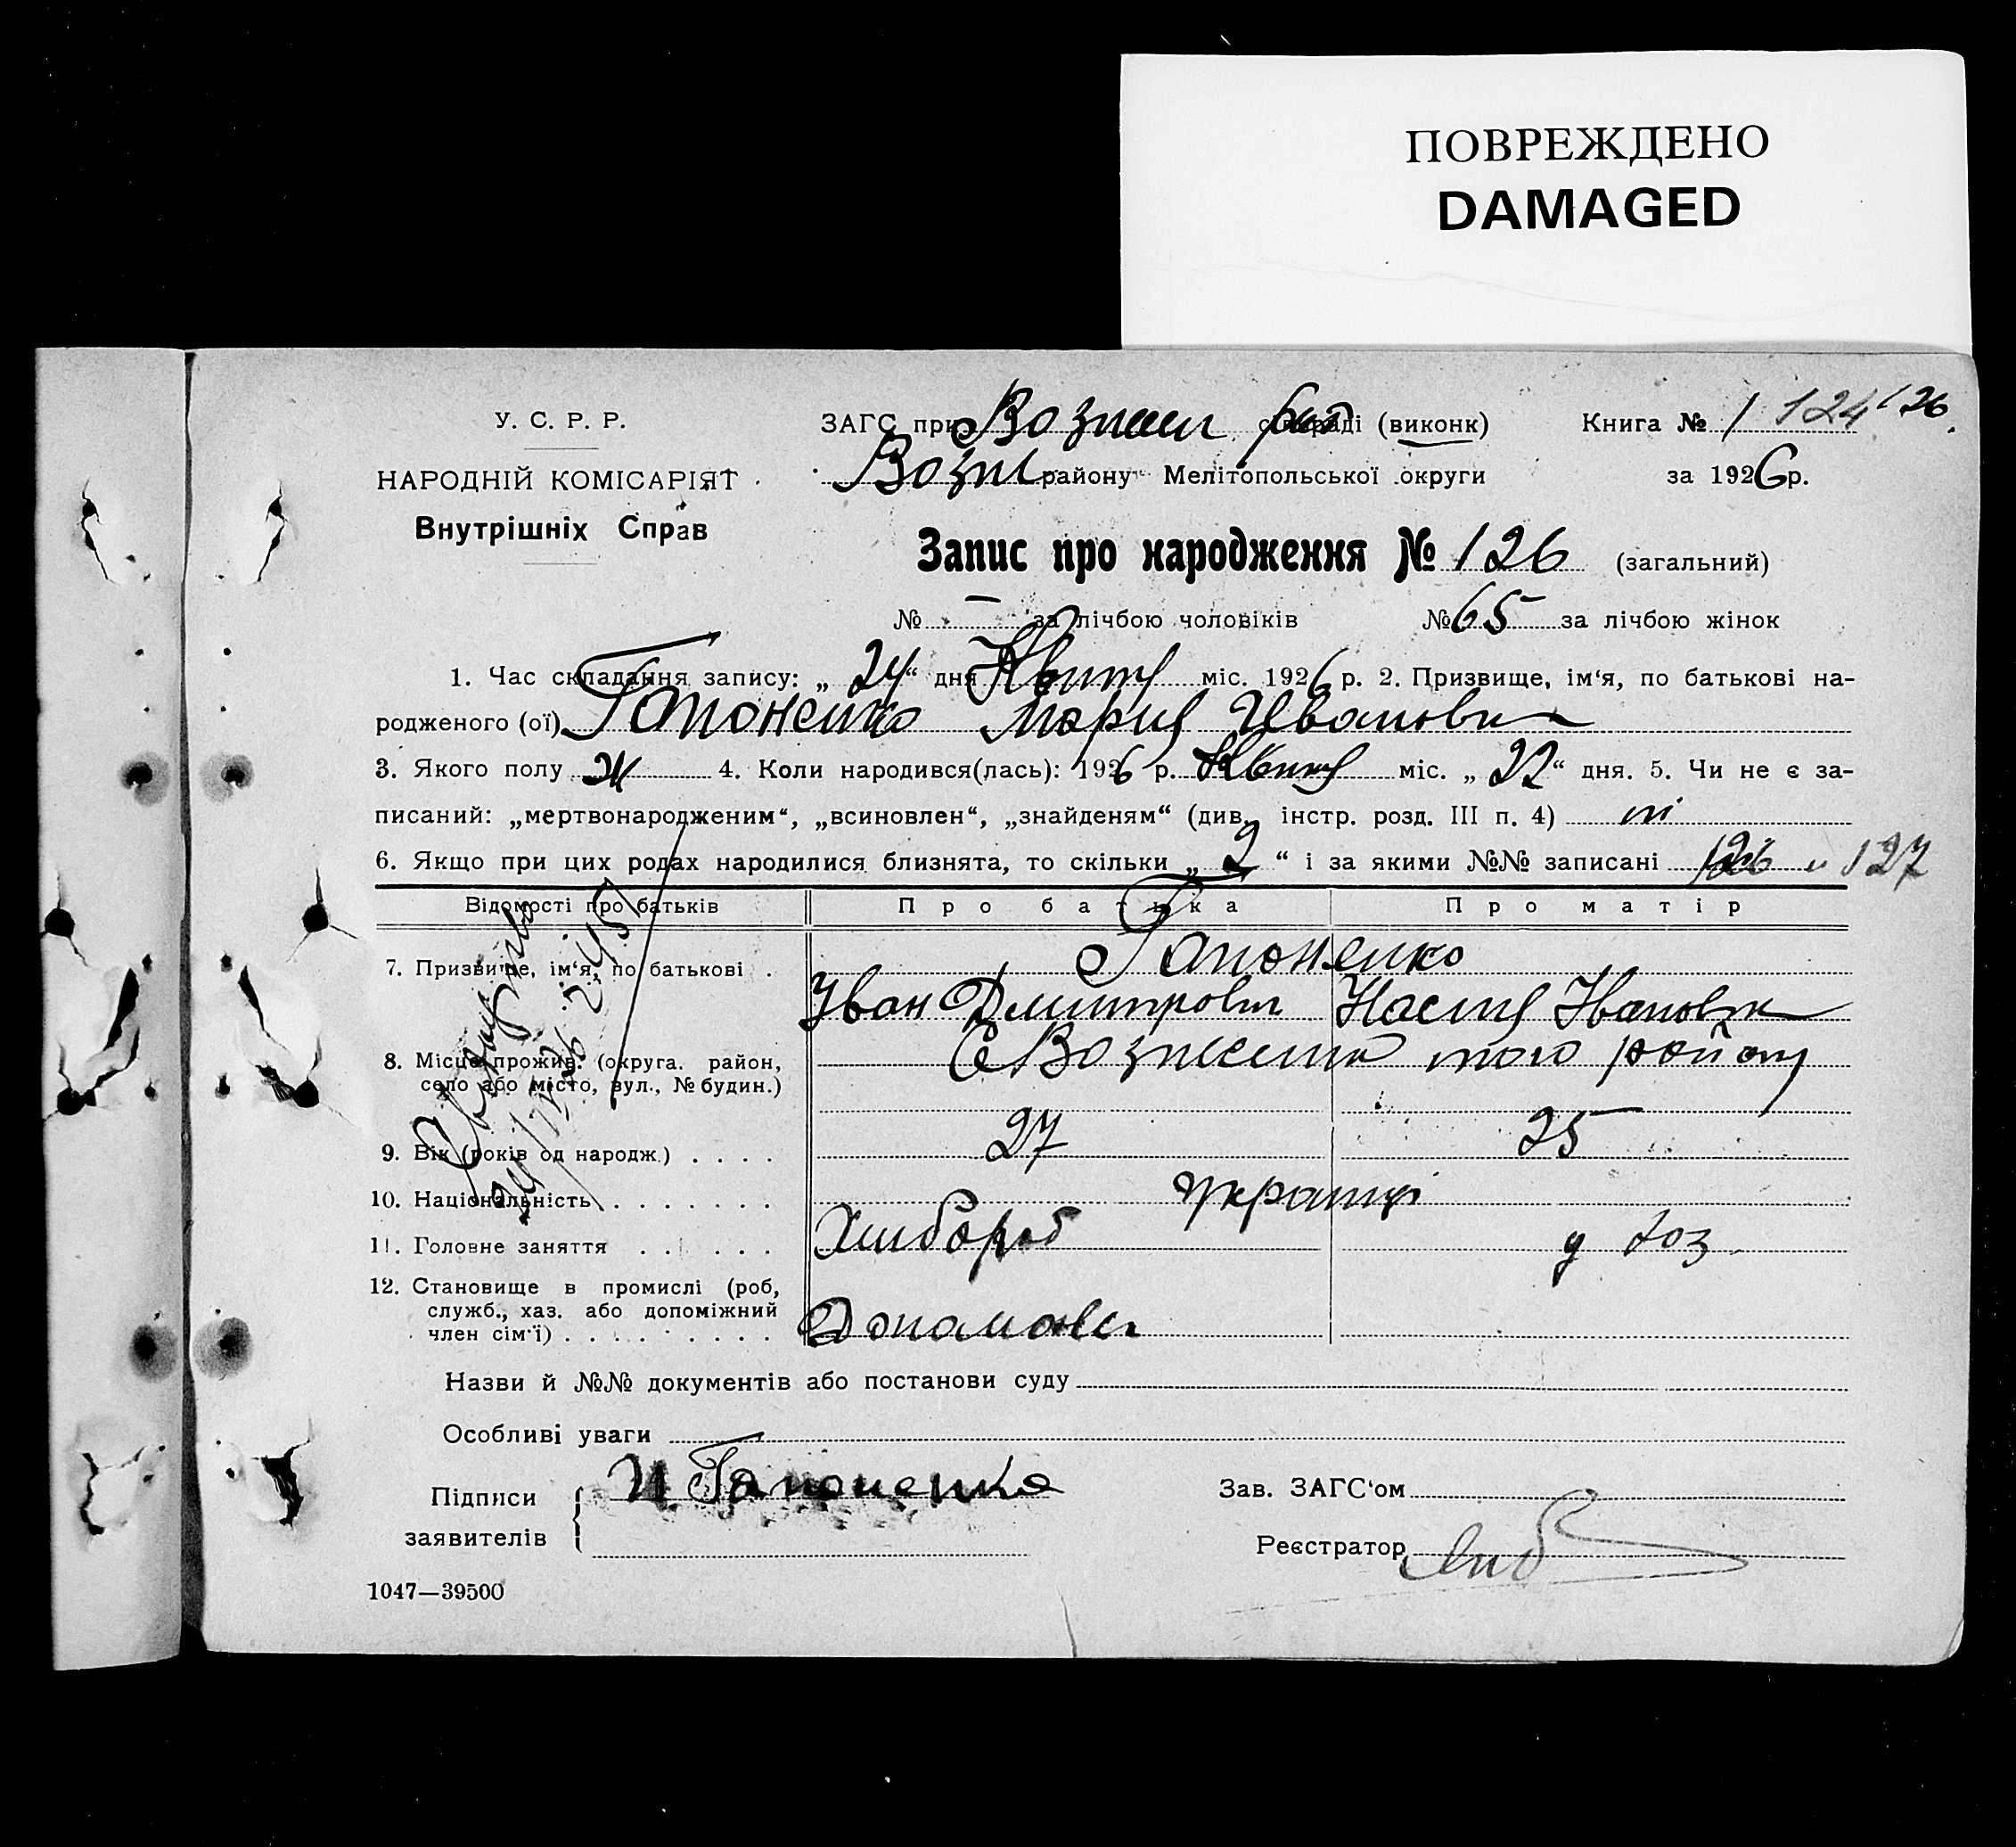 ПОВРЕЖДЕНО
DAMAGED
У. С. Р. Р.
НАРОДНІЙ КОМІСАРІЯТ
Внутрішніх Справ
ЗАГС при сільраді (виконк) Книга № 1 124 126
Возн району Мелітопольської округи за 1926 р.
Запис про народження № 126 (загальний)
№ — за лічбою чоловіків № 65 за лічбою жінок
1. Час складання запису: „ 24 “ дня Квітня міс. 1926 р. 2. Призвище, ім‘я, по батькові на-
родженого (ої) Гапоненко Мария Ивановна
3. Якого полу Ж 4. Коли народився(лась): 1926 р. Квітня міс. „ 22 “ дня. 5. Чи не є за-
писаний: „мертвонародженим“, „всиновлен“, „знайденям“ (див. інстр. розд. III п. 4) ні
6. Якщо при цих родах народилися близнята, то скільки „ 2 “ і за якими №№ записані 126 и 127
Відомості про батьків Про батька Про матір
7. Призвище, ім‘я, по батькові . Гапоненко
Іван Дмитрович Настя Івановна
8. Місце прожив. (округа. район, село або місто, вул., № будин.) С Вознесенка того району
9. Вік (років од народж.) . . . . 27 25
10. Національність . . . . . . . українці
11. Головне заняття . . . . . . Хлибороб д хоз.
12. Становище в промислі (роб, служб., хаз. або допоміжний член сім‘ї) . . . . . . . . .
Назви й №№ документів або постанови суду
Особливі уваги
Підписи заявителів И Гапоненко
Зав. ЗАГС‘ом
Реєстратор
1047—39500